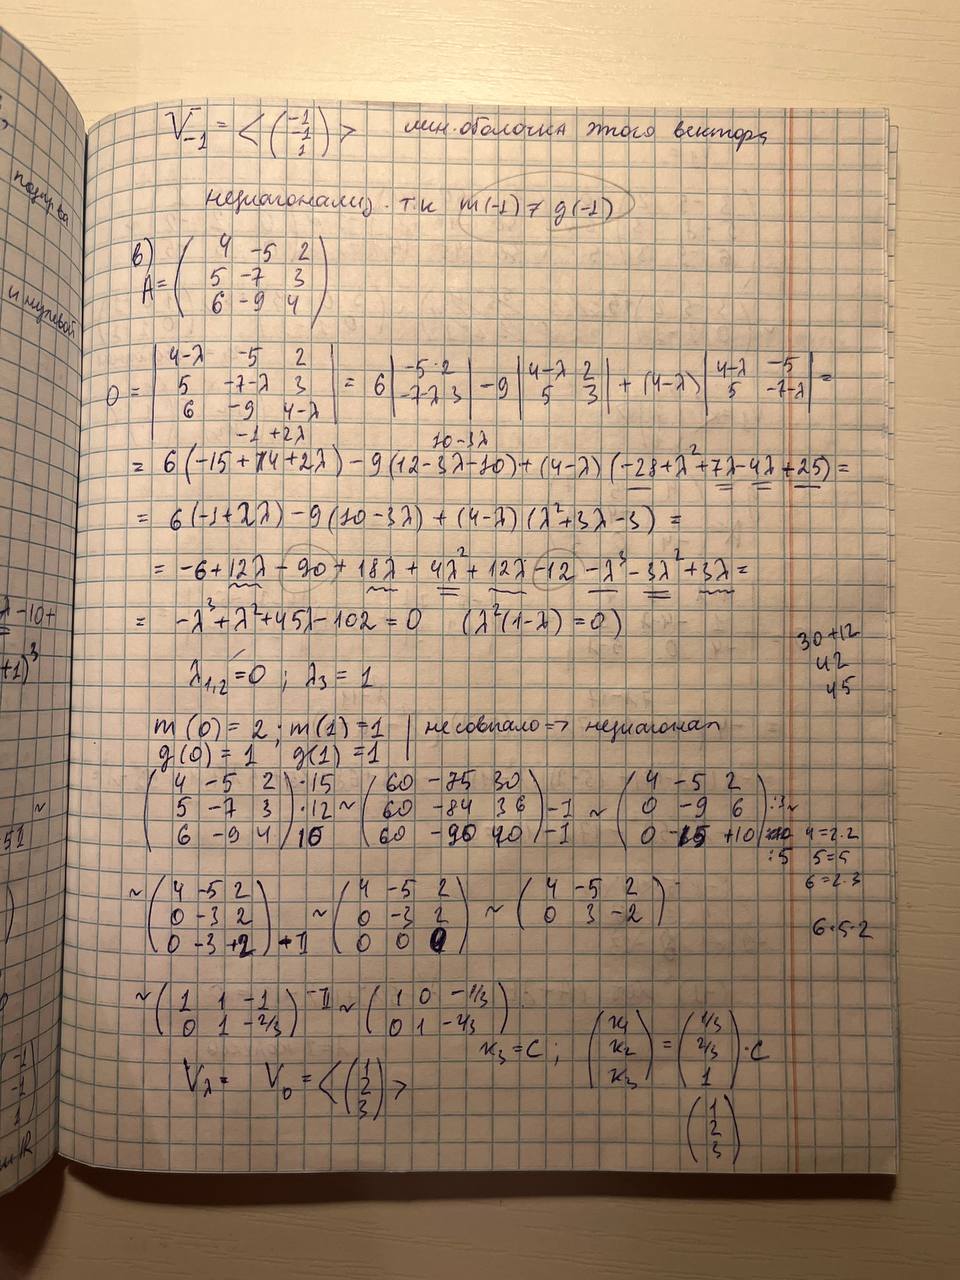 V₋₁ = < (-1 -1 1) > лин. оболочка этого вектора
недиагонализ. т.к m(-1) ≠ g(-1)
в)
A = ( 4 -5 2
5 -7 3
6 -9 4 )
0 = | 4-λ -5 2
5 -7-λ 3
6 -9 4-λ | = 6 | -5 2
-7-λ 3 | - 9 | 4-λ 2
5 3 | + (4-λ) | 4-λ -5
5 -7-λ | =
-1+2λ 10-3λ
= 6(-15+14+2λ) - 9(12-3λ-10) + (4-λ)(-28+λ²+7λ-4λ+25) =
= 6(-1+2λ) - 9(10-3λ) + (4-λ)(λ²+3λ-3) =
= -6+12λ-90+18λ+4λ²+12λ-12-λ³-3λ²+3λ =
= -λ³+λ²+45λ-102 = 0 (λ²(1-λ)=0)
30+12
42
45
λ₁,₂ = 0 ; λ₃ = 1
m(0) = 2 ; m(1) = 1 | не совпало => недиагонал
g(0) = 1 g(1) = 1
( 4 -5 2
5 -7 3
6 -9 4 ) ·15 ·12 10 ~ ( 60 -75 30
60 -84 36
60 -90 40 ) -1 -1 ~ ( 4 -5 2
0 -9 6
0 -15 +10 ) :3 ~ :5
4=2·2
5=5
6=2·3
6·5·2
~ ( 4 -5 2
0 -3 2
0 -3 +2 ) -I ~ ( 4 -5 2
0 -3 2
0 0 0 ) ~ ( 4 -5 2
0 3 -2 )
~ ( 1 1 -1
0 1 -2/3 ) -II ~ ( 1 0 -1/3
0 1 -2/3 )
x₃ = C ; ( x₁ x₂ x₃ ) = ( 1/3 2/3 1 ) · C
V_λ = V₀ = < ( 1 2 3 ) >
( 1 2 3 )